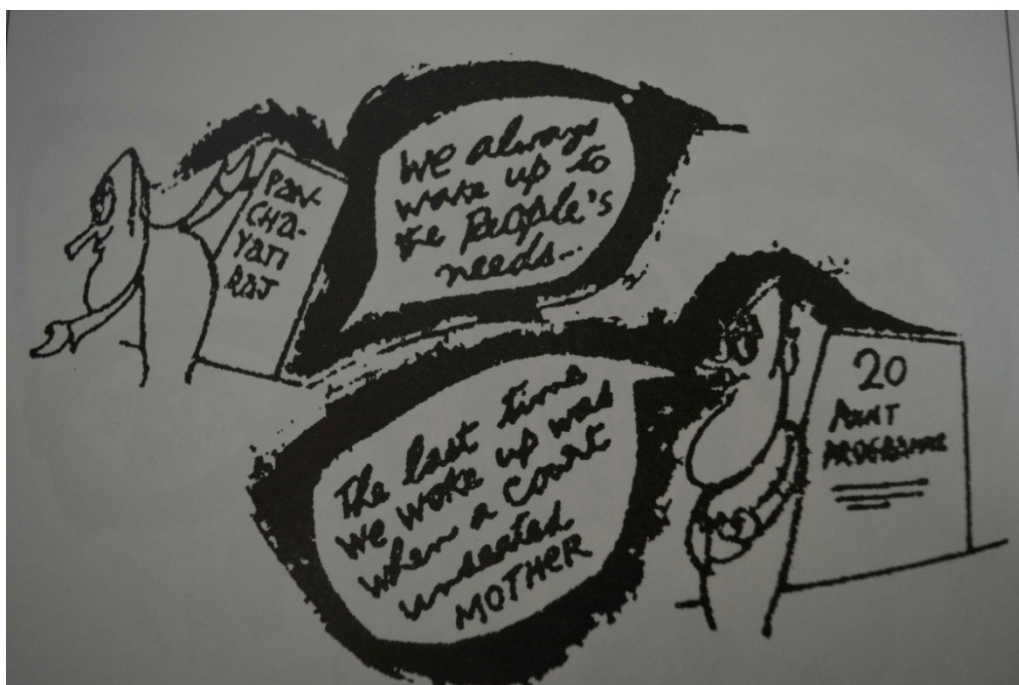 PAN-
CHA-
YATI
RAJ
We always
wake up to
the People's
needs...
The last time
we woke up was
when a court
unseated
MOTHER
20
POINT
PROGRAMME